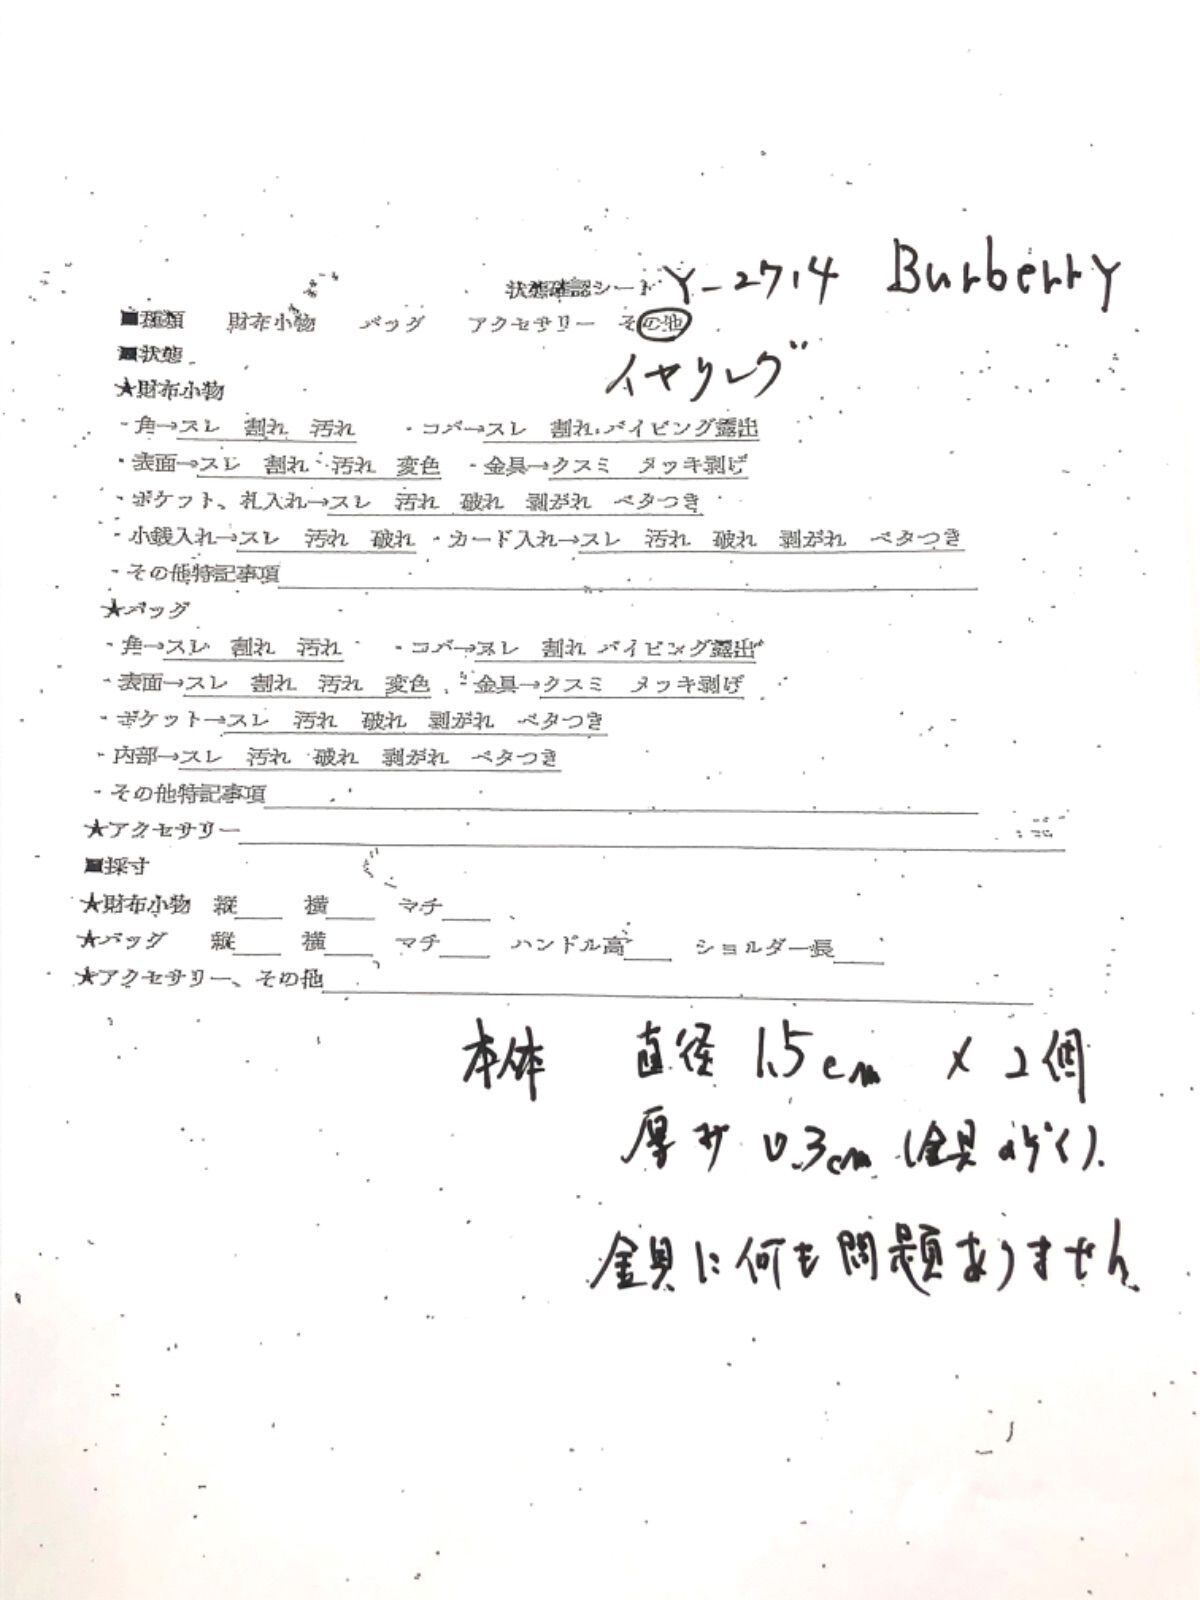 状態確認シート Y-2714 Burberry
■種類 財布小物 バッグ アクセサリー その他
■状態 イヤリング
★財布小物
・角→スレ 割れ 汚れ ・コバ→スレ 割れ パイピング露出
・表面→スレ 割れ 汚れ 変色 ・金具→クスミ メッキ剥げ
・ポケット、札入れ→スレ 汚れ 破れ 剥がれ ベタつき
・小銭入れ→スレ 汚れ 破れ ・カード入れ→スレ 汚れ 破れ 剥がれ ベタつき
・その他特記事項
★バッグ
・角→スレ 割れ 汚れ ・コバ→スレ 割れ パイピング露出
・表面→スレ 割れ 汚れ 変色 ・金具→クスミ メッキ剥げ
・ポケット→スレ 汚れ 破れ 剥がれ ベタつき
・内部→スレ 汚れ 破れ 剥がれ ベタつき
・その他特記事項
★アクセサリー
■採寸
★財布小物 縦 横 マチ
★バッグ 縦 横 マチ ハンドル高 ショルダー長
★アクセサリー、その他
本体 直径 1.5cm × 2個
厚み 0.3cm (金具のぞく).
金具に何も問題ありません